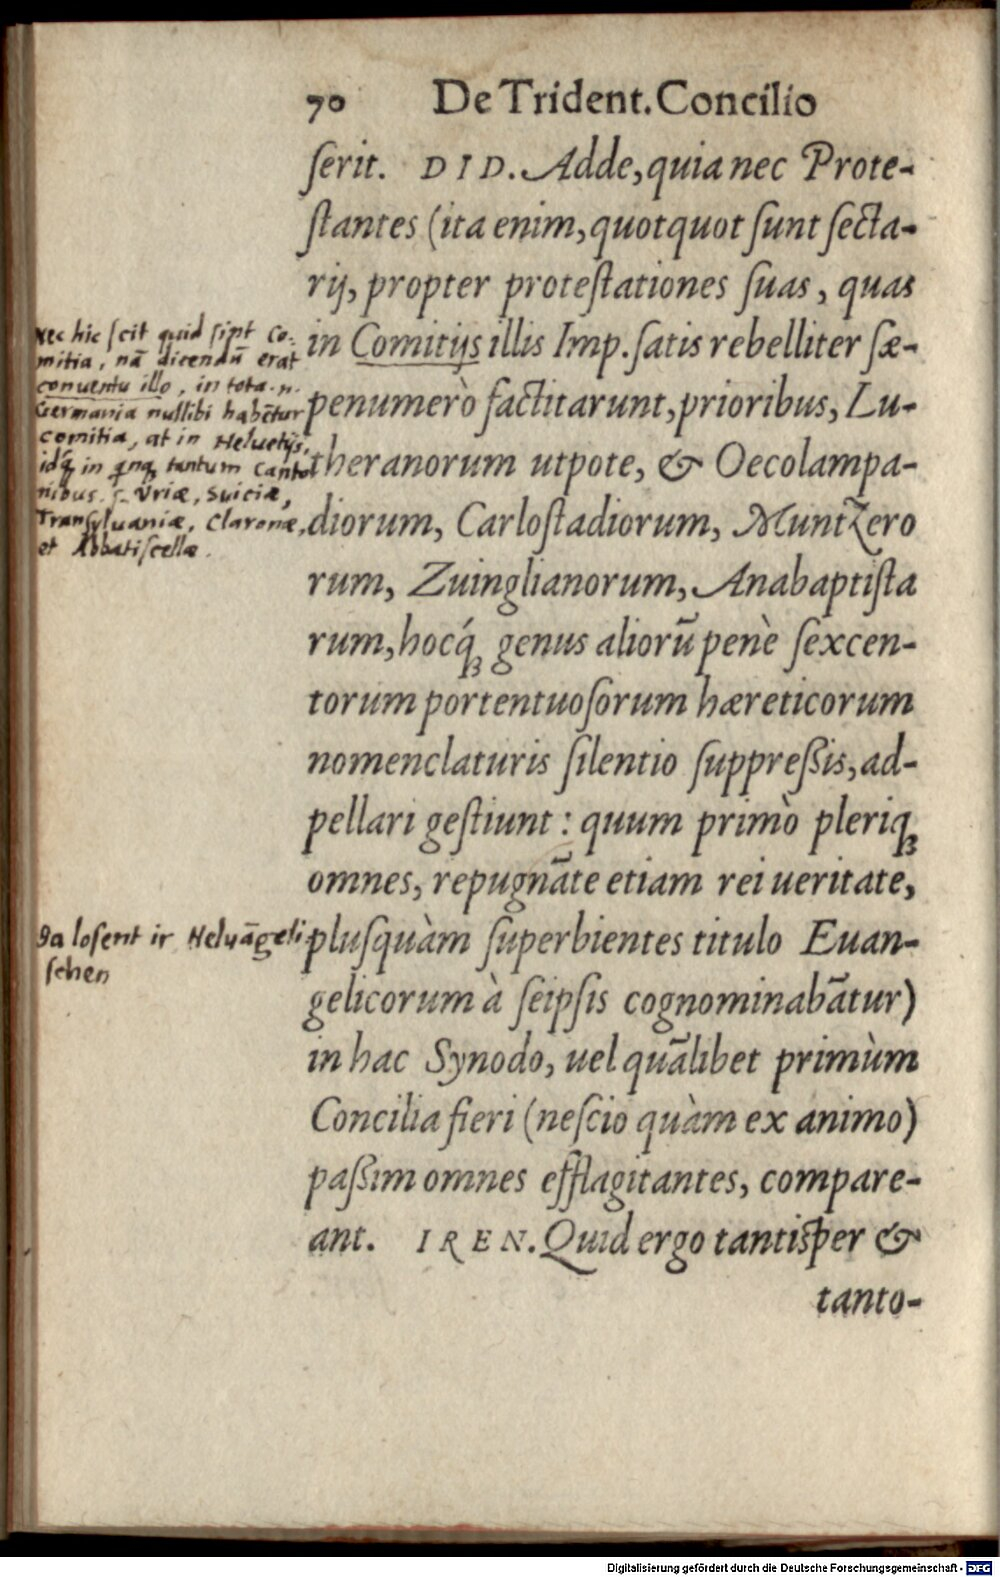 70 De Trident. Concilio
ſerit. DID. Adde, quia nec Prote-
ſtantes (ita enim, quotquot ſunt ſecta-
rij, propter proteſtationes ſuas, quas
in Comitijs illis Imp. ſatis rebelliter ſæ-
penumerò factitarunt, prioribus, Lu-
theranorum utpote, & Oecolampa-
diorum, Carloſtadiorum, Muntzero
rum, Zuinglianorum, Anabaptiſta
rum, hocq́ꝫ genus aliorū penè ſexcen-
torum portentuoſorum hæreticorum
nomenclaturis ſilentio ſuppreßis, ad-
pellari geſtiunt: quum primò pleriqꝫ
omnes, repugnāte etiam rei ueritate,
pluſquàm ſuperbientes titulo Euan-
gelicorum à ſeipſis cognominabātur)
in hac Synodo, uel quālibet primùm
Concilia fieri (neſcio quàm ex animo)
paßim omnes efflagitantes, compare-
ant. IREN. Quid ergo tantiſper &
tanto-
Nec hic ſcit quid ſint Co-
mitia, nā dicendū erat
conuentu illo, in tota .n.
Germania nullibi habētur
comitia, at in Heluetijs,
idq́ꝫ in tantum Canto
nibus. ſ. Vriæ, Suiciæ,
Tranſyluaniæ, Claronæ,
et Abbatiſcellæ.
Da loſent ir Heluāgeli
ſchen
Digitalisierung gefördert durch die Deutsche Forschungsgemeinschaft - DFG